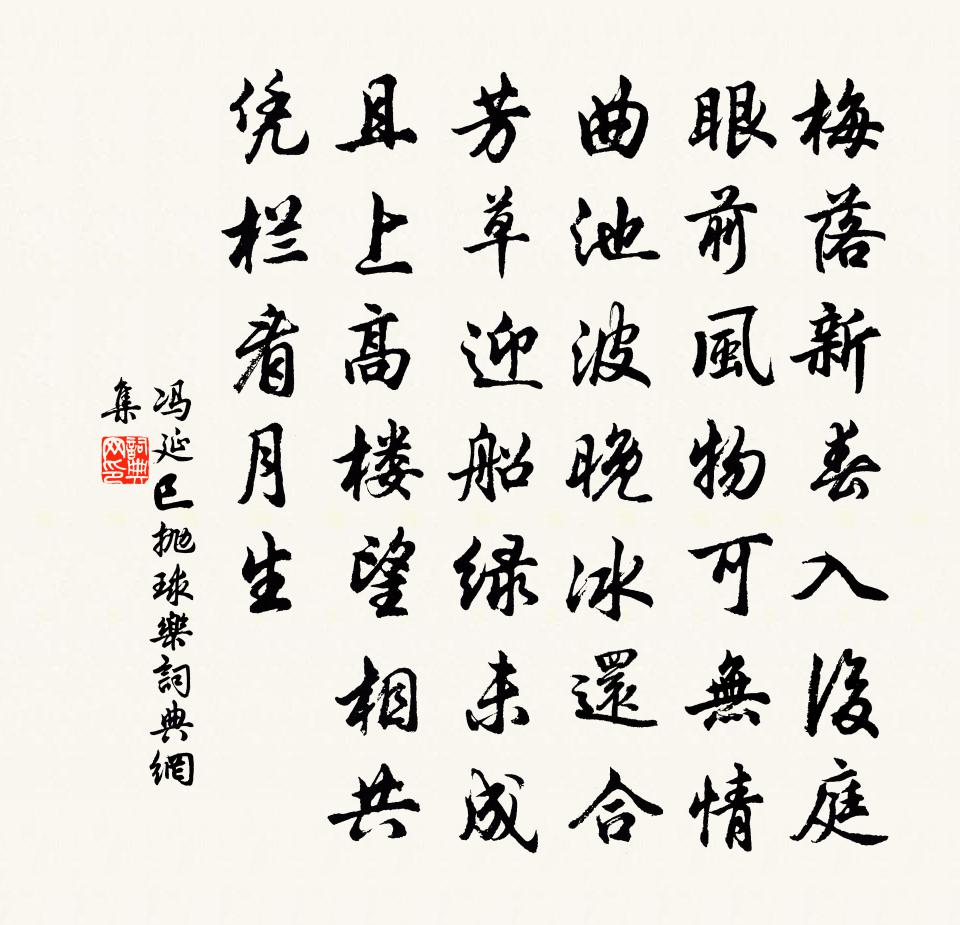 梅落新春入後庭
眼前風物可無情
曲池波晚冰還合
芳草迎船绿未成
且上高楼望相共
凭栏看月生
冯延巳抛球樂詞典網
集
詞典
网印